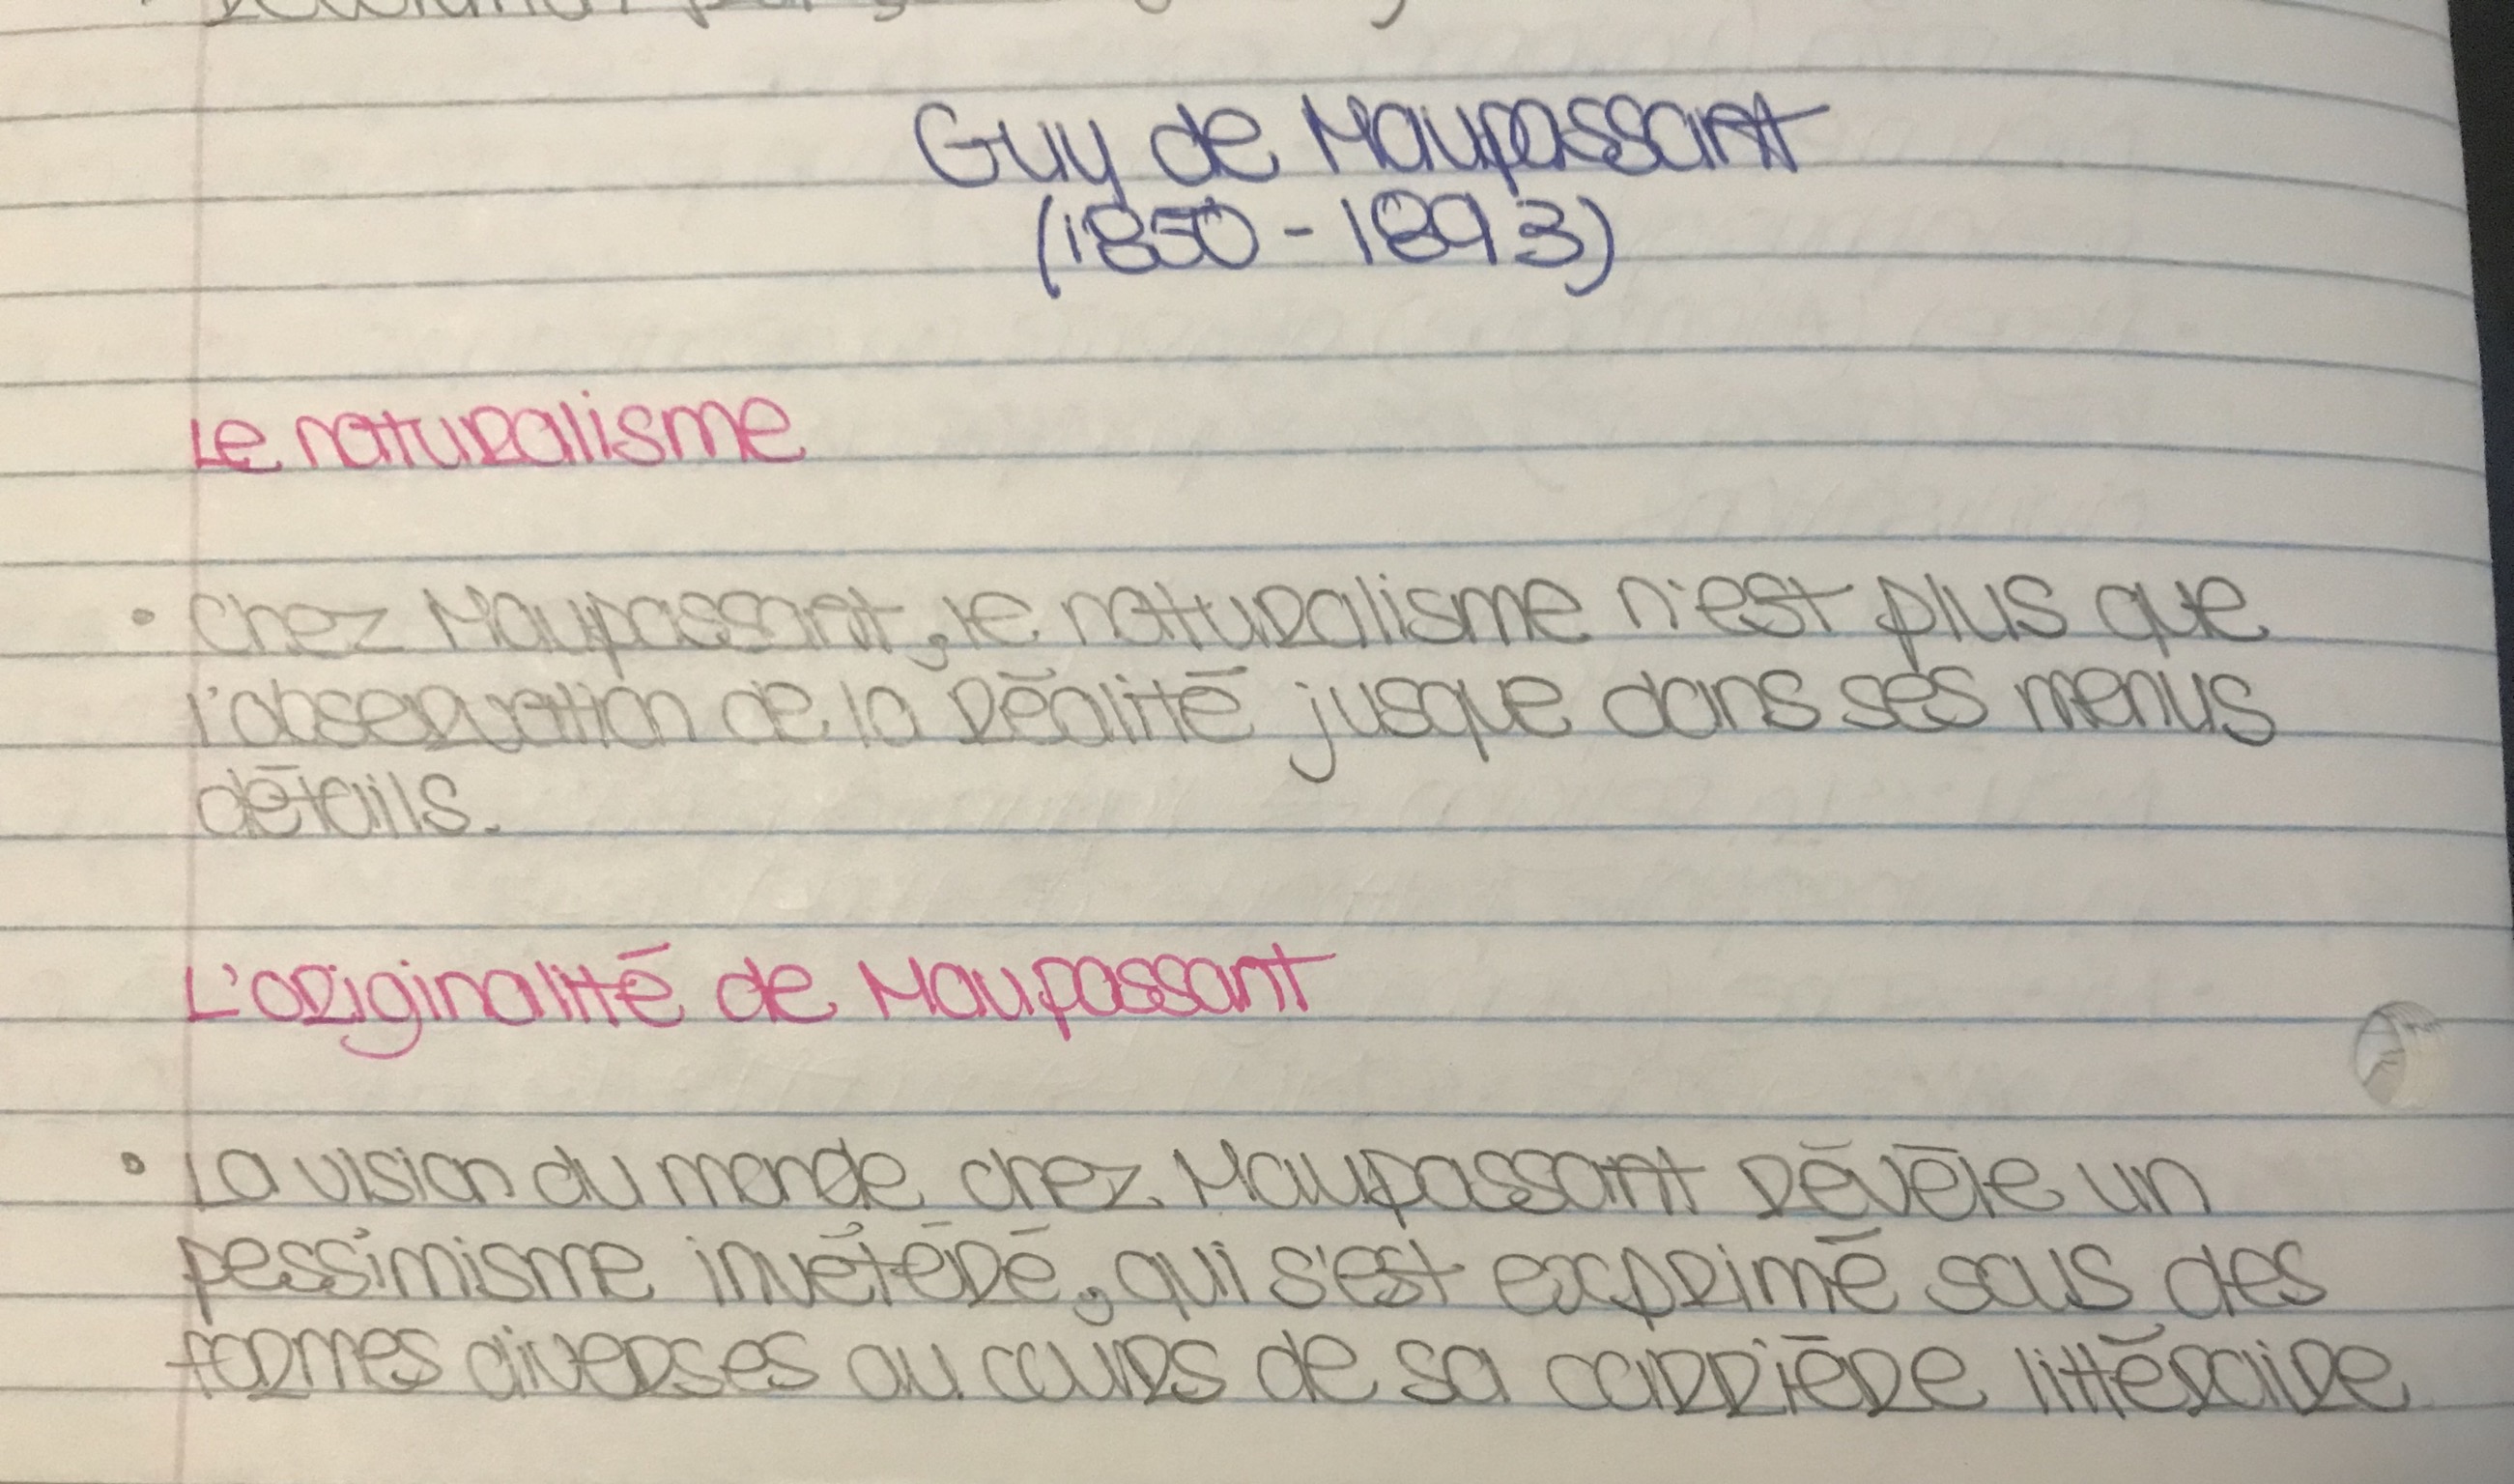 Guy de Maupassant
(1850 - 1893)
Le naturalisme
• Chez Maupassant, le naturalisme n'est plus que
l'observation de la réalité jusque dans ses menus
détails.
L'originalité de Maupassant
• La vision du monde chez Maupassant révèle un
pessimisme invétéré, qui s'est exprimé sous des
formes diverses au cours de sa carrière littéraire